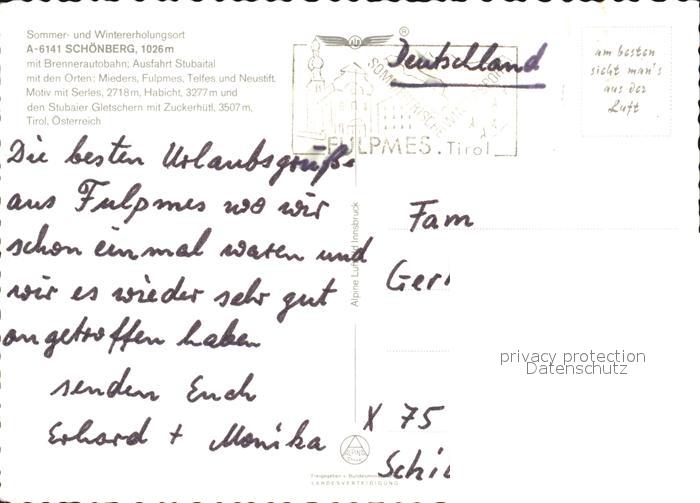 Sommer- und Wintererholungsort
A-6141 SCHÖNBERG, 1026 m
mit Brennerautobahn; Ausfahrt Stubaital
mit den Orten: Mieders, Fulpmes, Telfes und Neustift.
Motiv mit Serles, 2718 m, Habicht, 3277 m und
den Stubaier Gletschern mit Zuckerhütl, 3507 m,
Tirol, Österreich
Die besten Urlaubsgrüße
aus Fulpmes wo wir
schon einmal waren und
wir es wieder sehr gut
angetroffen haben
senden Euch
Erhard + Monika
Alpine Luftbild Innsbruck
FULPMES. Tirol
Deutschland
am besten
sieht man's
aus der
Luft
Fam
Ger
X 75
Schi
ALPINE
LANDESVERTEIDIGUNG
privacy protection
Datenschutz